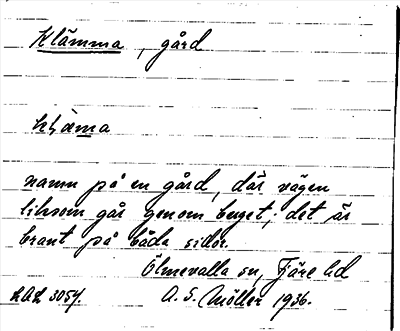 Klämma, gård
klæma
namn på en gård, där vägen
liksom går genom berget; det är
brant på båda sidor.
Ölmevalla sn, Fjäre hd
A. S. Möller 1936.